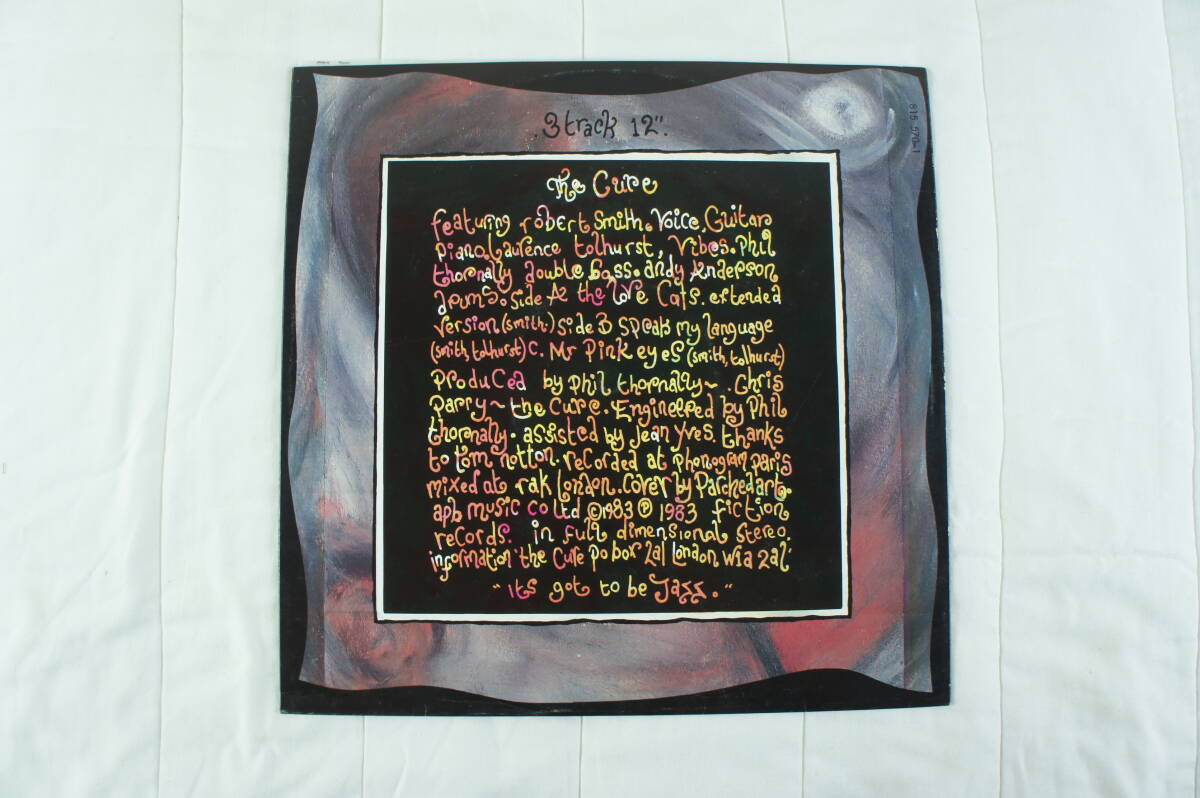 3 track 12".
815 570-1
The Cure
featuring robert smith. Voice, Guitar
piano. Laurence tolhurst, Vibes. Phil
thornally double bass. andy Anderson
drums. side A the love Cats. extended
version (smith) side B speak my language
(smith, tolhurst) C. Mr Pink eyes (smith, tolhurst)
produCed by phil thornally~. Chris
parry~the Cure. Engineered by Phil
thornally. assisted by jean yves. thanks
to tom notton. recorded at phonogram paris
mixed at rak london. cover by Parchedart.
apb music co ltd ©1983 ℗ 1983 fiction
records. in full dimensional stereo.
information 'the Cure po box 2al london w1a 2al'
"its got to be Jazz."